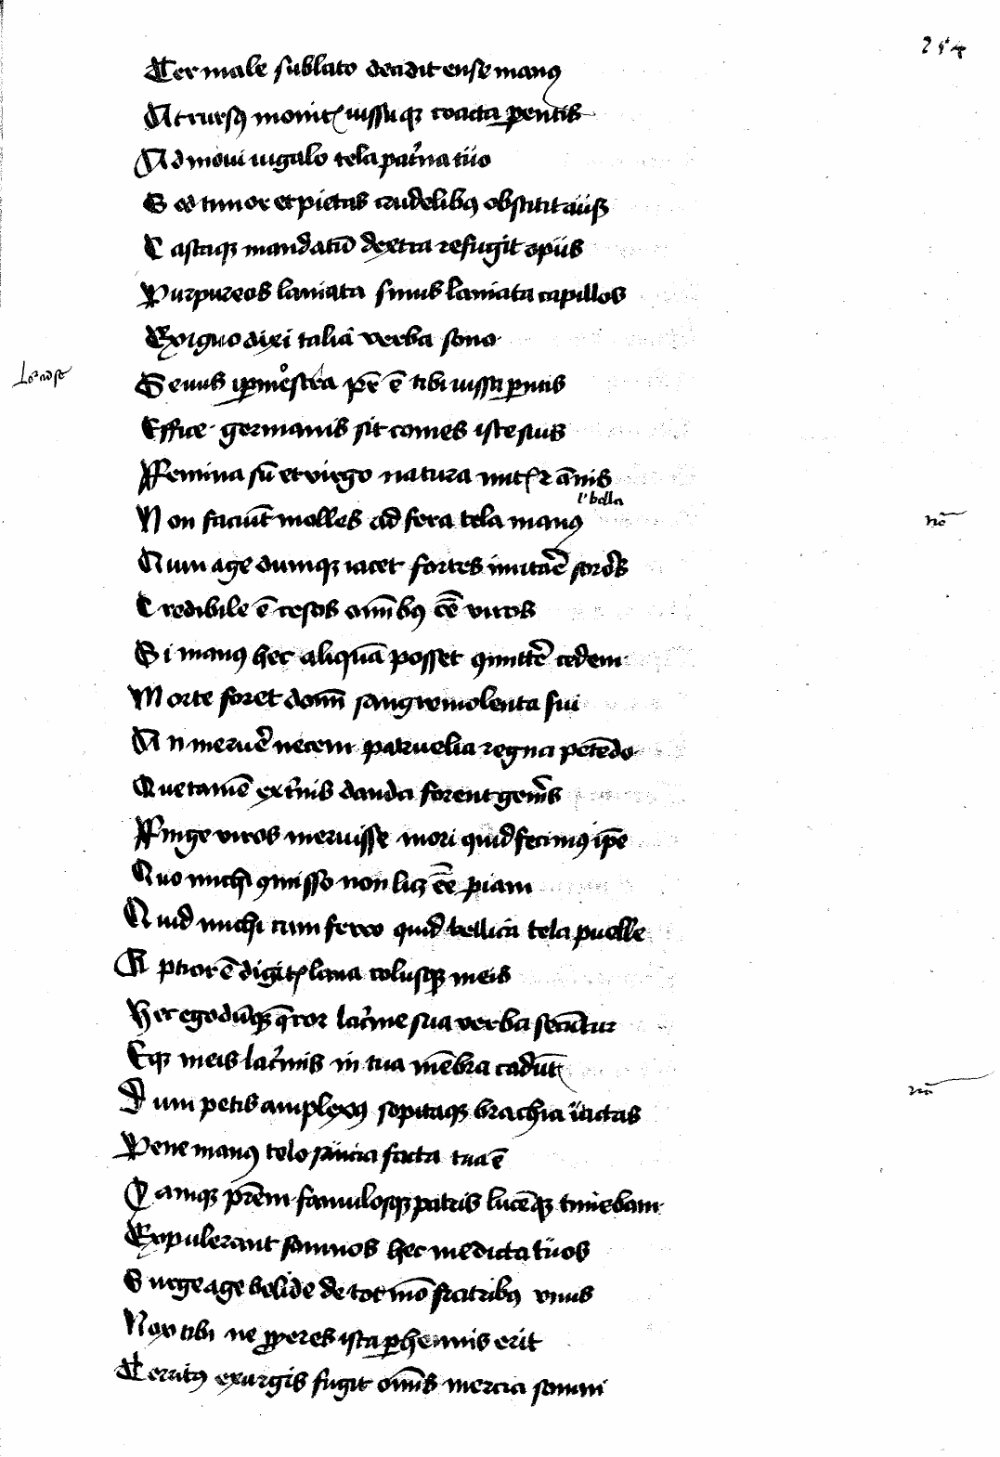 254
Ter male sublato decidit ense manus
At rursus monitis iussuque coacta parentis
Admovi iugulo tela paterna tuo
Sed timor et pietas crudelibus obstitit ausis
Castaque mandatum dextra refugit opus
Purpureos laniata sinus laniata capillos
Exiguo dixi talia verba sono
Sevus ipermestra pater est tibi iussa parentis
Effice germanis sit comes iste suis
Femina sum et virgo natura mitis et annis
l' bella
Non faciunt molles ad fera tela manus
no
Quin age dumque iacet fortes imitare sorores
Credibile est cesos omnibus esse viros
Si manus hec aliquam posset committere cedem
Morte foret domine sanguinolenta sui
An meruere necem patruelia regna petendo
Que tamen externis danda forent generis
Finge viros meruisse mori quid fecimus ipse
Quo michi commisso non licet esse piam
Quid michi cum ferro quid bellica tela puelle
Aptior est digitis lana colusque meis
Hec ego dumque queror lacrime sua verba secuntur
Eque meis lacrimis in tua membra cadunt
Dum petis amplexus sopitaque brachia iactas
Pene manus telo saucia facta tua est
Iamque patrem famulosque patris lucemque timebam
Expulerant somnos hec mea dicta tuos
Surge age belide de tot modo fratribus unus
Nox tibi ne properes ista perhennis erit
Territus exurgis fugit omnis inercia somni